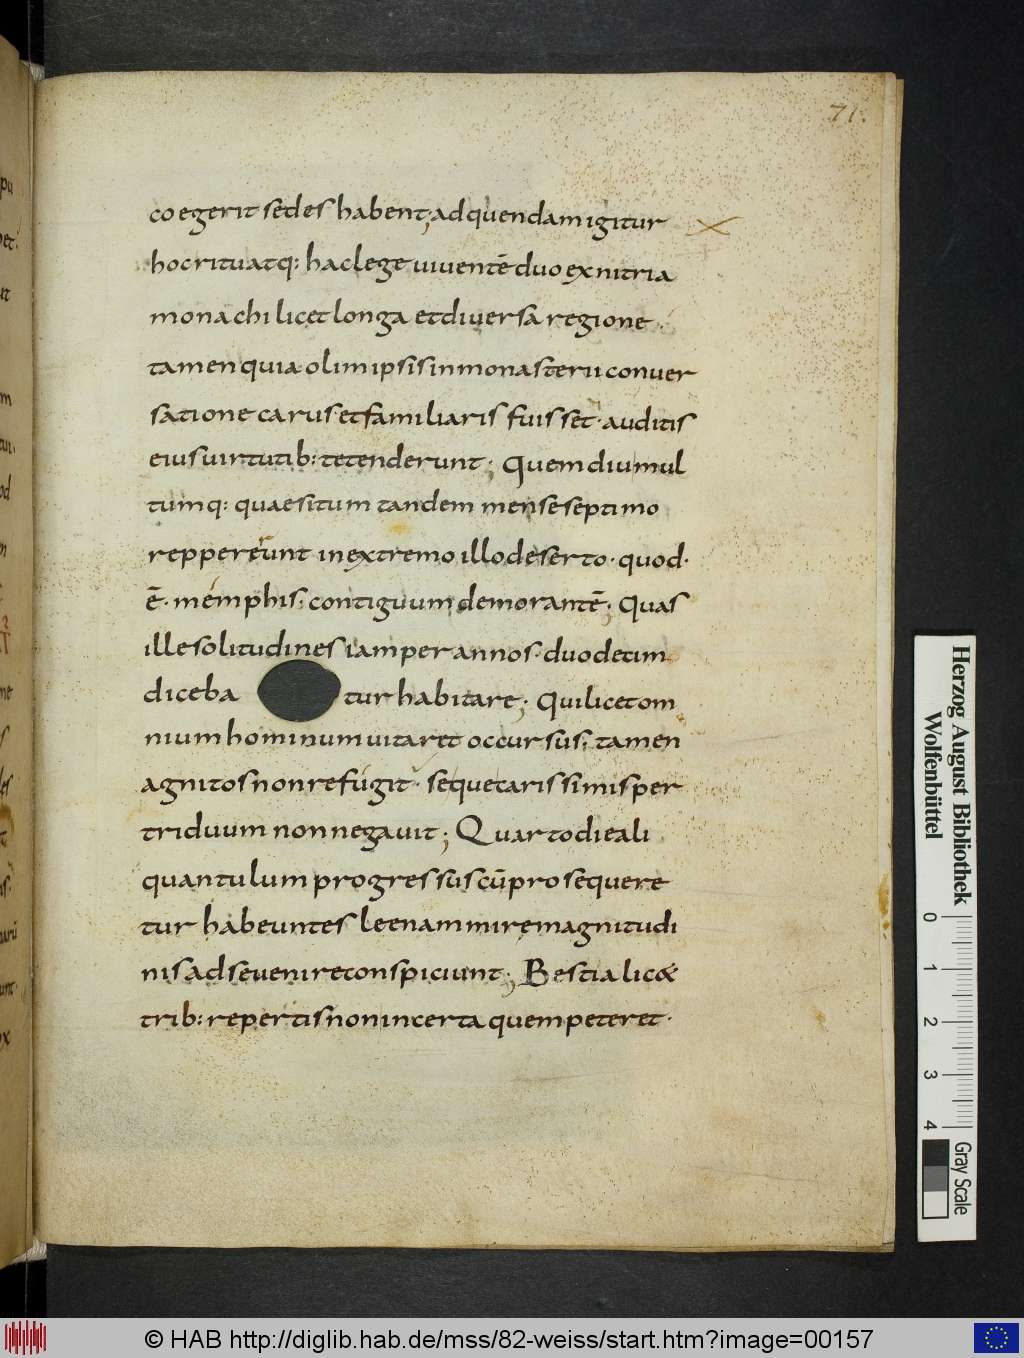 71.
coegerit sedes habent; ad quendam igitur
hoc ritu atq: hac lege uiuentē duo ex nitria
monachi licet longa et diuersa regione
tamen quia olim ipsis in monasterii conuer
satione carus et familiaris fuisset · auditis
eius uirtutib: tetenderunt; Quem diu mul
tumq: quaesitum tandem mense septimo
reppererunt in extremo illo deserto · quod ·
ē · memphis · contiguum demorantē; Quas
ille solitudines iam per annos · duodecim
diceba tur habitare; Qui licet om
nium hominum uitaret occursus; tamen
agnitos non refugit · seque carissimis per
triduum non negauit; Quarto die ali
quantulum progressus cū prosequere
tur habeuntes leenam mire magnitudi
nis ad se uenire conspiciunt; Bestia lic&
trib: repertis non incerta quem peteret ·
Herzog August Bibliothek
Wolfenbüttel
0 1 2 3 4
Gray Scale
© HAB http://diglib.hab.de/mss/82-weiss/start.htm?image=00157